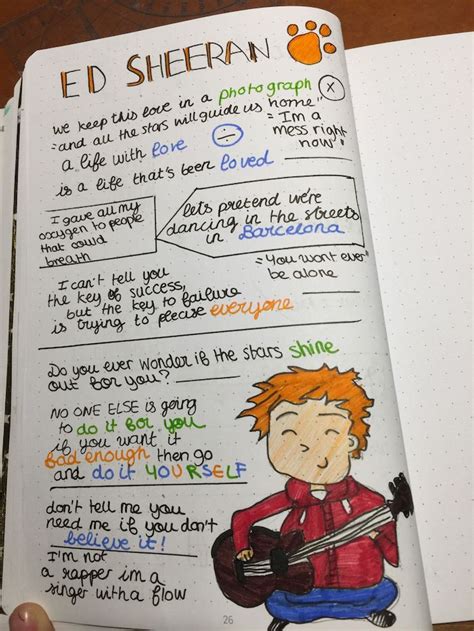 ED SHEERAN
we keep this love in a photograph
"and all the stars will guide us home"
a life with love
is a life that's been loved
= I'm a
mess right
now"
I gave all my
oxygen to people
that could
breath
lets pretend we're
dancing in the streets
in Barcelona
I can't tell you
the key of success,
but the key to failure
is trying to please everyone
"You want ever
be alone
Do you ever wonder if the stars shine
out for you?
NO ONE ELSE is going
to do it for you
if you want it
bad enough then go
and do it YOURSELF
don't tell me you
need me if you don't
believe it!
I'm not
a rapper im a
singer with a flow
26